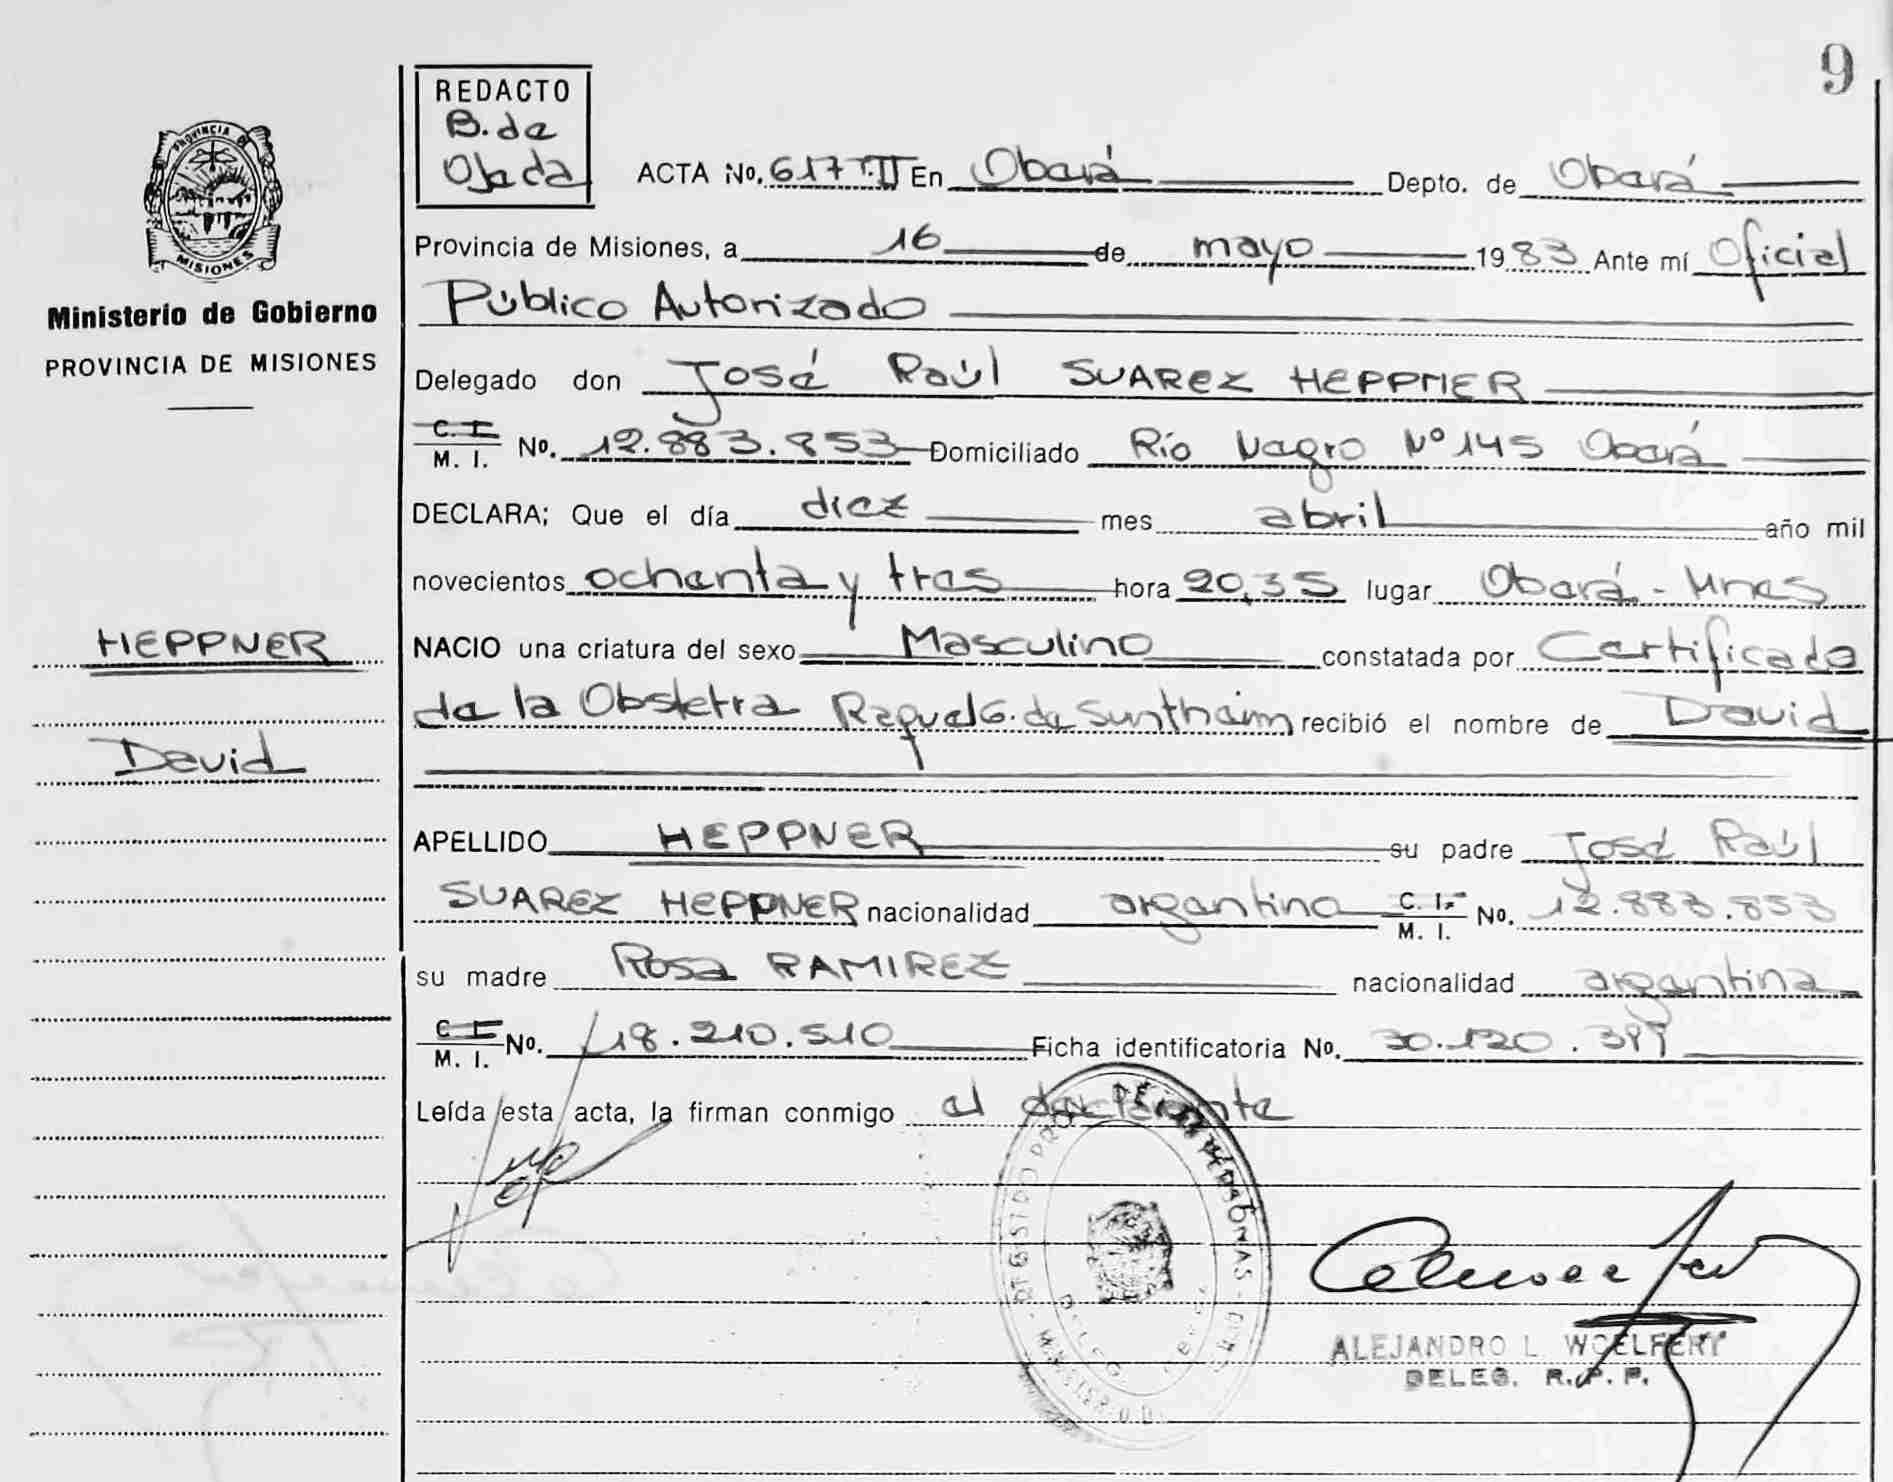 9
REDACTO
B. de
Ojeda
ACTA No. 617 T.II En Oberá Depto. de Oberá
Provincia de Misiones, a 16 de mayo 1983 Ante mí Oficial
Público Autorizado
Delegado don José Raúl SUAREZ HEPPNER
C. I.
M. I. No. 12.883.853 Domiciliado Río Negro Nº 145 Oberá
DECLARA; Que el día diez mes abril año mil
novecientos ochenta y tres hora 20,35 lugar Oberá - Mnes
NACIO una criatura del sexo Masculino constatada por Certificado
de la Obstetra Raquel G. de Sunthaim recibió el nombre de David
APELLIDO HEPPNER su padre José Raúl
SUAREZ HEPPNER nacionalidad argentino C. I.
M. I. No. 12.883.853
su madre Rosa RAMIREZ nacionalidad argentina
C. I.
M. I. No. 18.210.510 Ficha identificatoria No. 30.120.399
Leída esta acta, la firman conmigo el declarante
ALEJANDRO L. WOELFERT
DELEG. R. P. P.
PROVINCIA DE
MISIONES
Ministerio de Gobierno
PROVINCIA DE MISIONES
HEPPNER
David